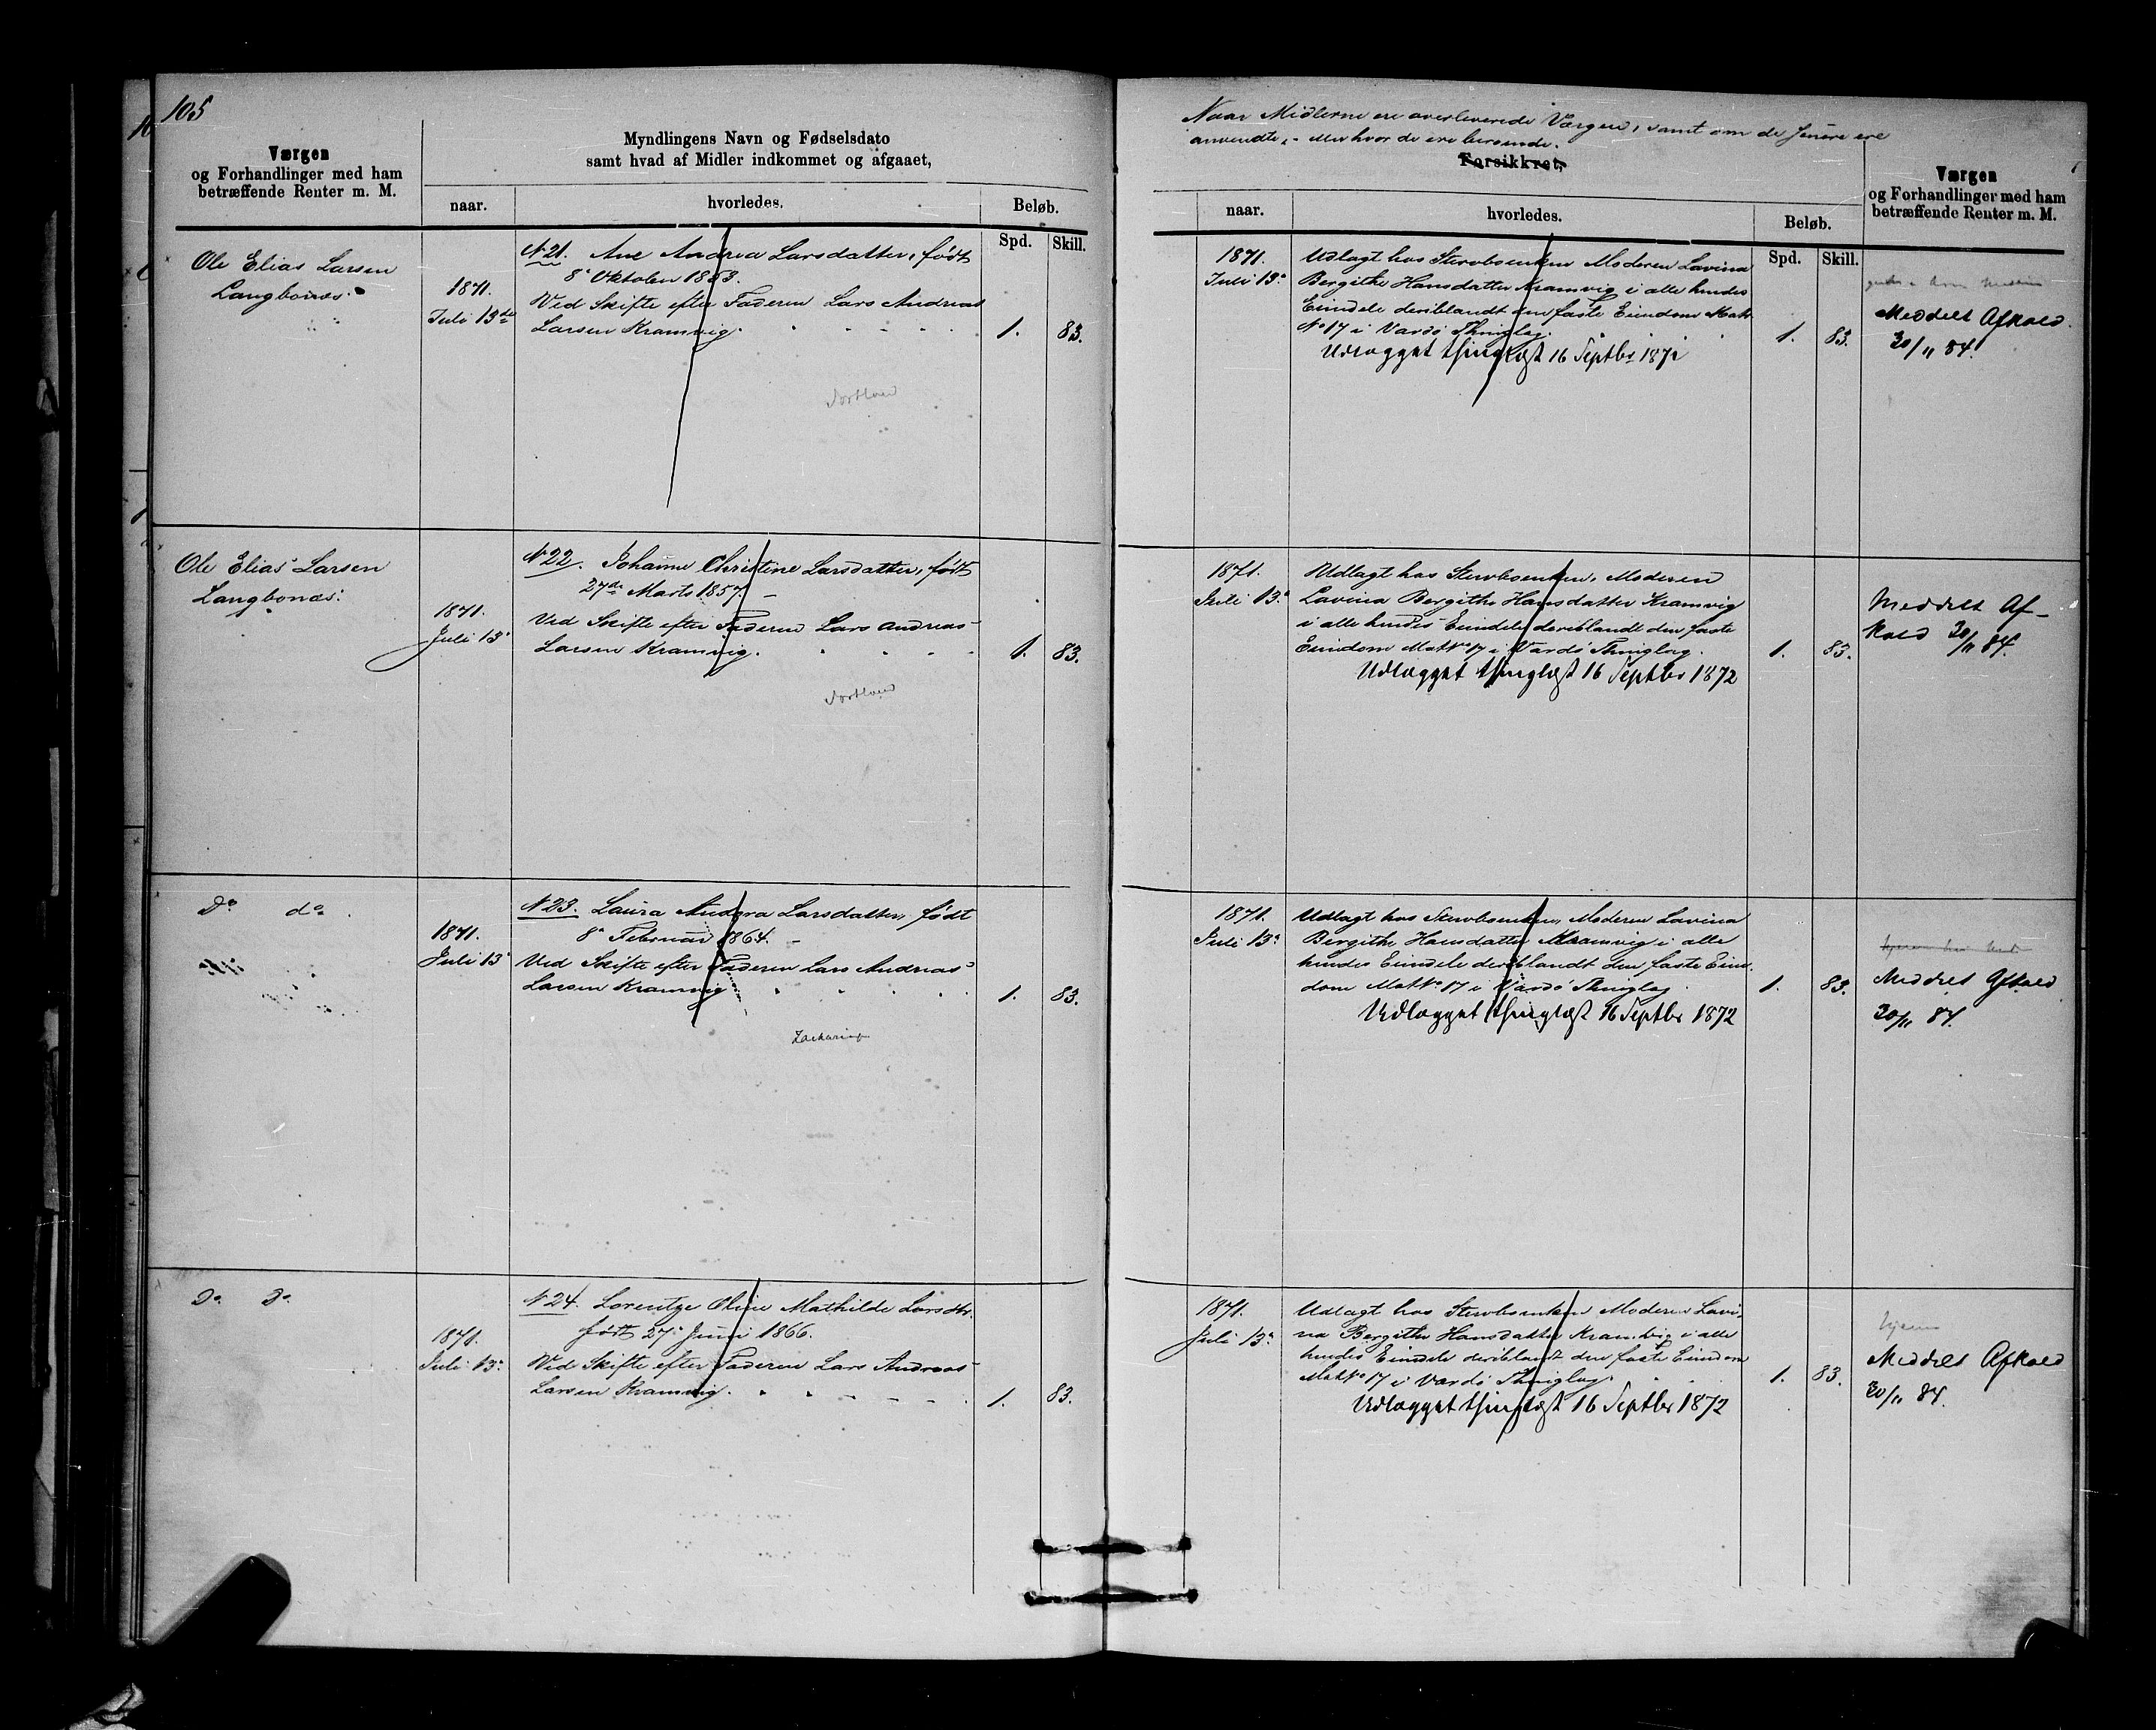 105
Værgen
og Forhandlinger med ham
betræffende Renter m. M.
Myndlingens Navn og Fødselsdato
samt hvad af Midler indkommet og afgaaet,
naar.
hvorledes.
Beløb.
Spd.
Skill.
Ole Elias Larsen
Langbonæs.
1871.
Juli 13de
N 21. Ane Andrea Larsdatter, født
8de Oktober 1853.
Ved Skifte efter Faderen Lars Andreas
Larsen Kramvig.
1. 83.
Ole Elias Larsen
Langbonæs.
1871.
Juli 13de
N 22. Johanne Christine Larsdatter, født
27de Marts 1857. -
Ved Skifte efter Faderen Lars Andreas
Larsen Kramvig.
1. 83.
Do do
1871.
Juli 13
N 23. Laura Andora Larsdatter, født
8de Februar 1864. -
Ved Skifte efter Faderen Lars Andreas
Larsen Kramvig
1. 83.
Zacharias
Do Do
1871.
Juli 13
N 24. Lorentze Oline Mathilde Larsdtr.
født 27de Juni 1866.
Ved Skifte efter Faderen Lars Andreas
Larsen Kramvig.
1. 83.
Naar Midlerne ere overleverede Værgen, samt om de senere ere
anvendte, eller hvor de ere beroende.
Forsikkret,
naar.
hvorledes.
Beløb.
Spd.
Skill.
Værgen
og Forhandlinger med ham
betræffende Renter m. M.
1871.
Juli 13
Udlagt hos Stervboenken Moderen Lavina
Bergithe Hansdatter Kramvig i alle hendes
Eiendele deriblandt den faste Eiendom Mat
No 17 i Vardø Thinglag.
Udlægget thinglæst 16 Septbr 1872
1. 83.
Meddelt Afkald
30/11 84.
1871.
Juli 13
Udlagt hos Stervboenken, Moderen
Lavina Bergithe Hansdatter Kramvig
i alle hendes Eiendele deriblandt den faste
Eiendom Mat No 17 i Vardø Thinglag.
Udlægget thinglæst 16 Septbr 1872
1. 83.
Meddelt Af-
kald 30/11 84.
1871.
Juli 13
Udlagt hos Stervboenken, Moderen Lavina
Bergithe Hansdatter Kramvig i alle
hendes Eiendele deriblandt den faste Eien-
dom Mat No 17 i Vardø Thinglag.
Udlægget thinglæst 16 Septbr 1872
1. 83.
Meddelt Afkald
30/11 84.
1871.
Juli 13
Udlagt hos Stervboenken Moderen Lavi-
na Bergithe Hansdatter Kramvig i alle
hendes Eiendele deriblandt den faste Eiendom
Mat No 17 i Vardø Thinglag.
Udlægget thinglæst 16 Septbr 1872
1. 83.
hjem
Meddelt Afkald
30/11 84.